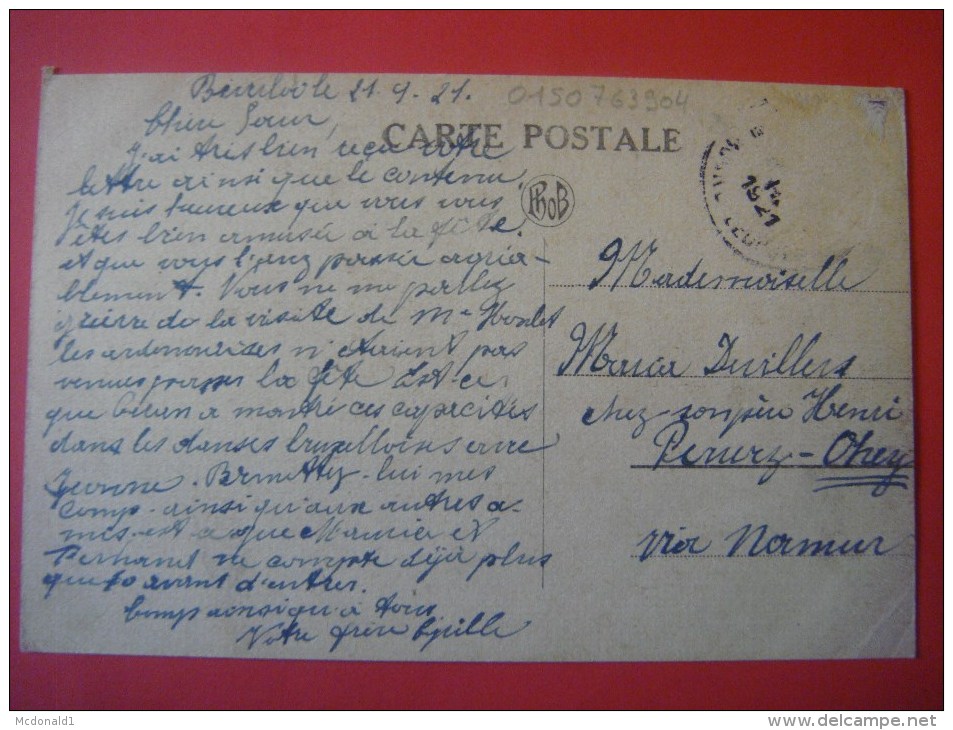 21.9.21.
0150763904
Chère Soeur,
CARTE POSTALE
J'ai très bien reçu votre
lettre ainsi que le contenu.
Je suis heureux que vous vous
êtes bien amusée à la fête.
et que vous l'ayez passée agréa-
blement. Vous ne me parlez
guerre de la visite de Mr
les ardennaises n'étaient pas
venues passer la fête Est-ce
que a montré ces capacités
dans les danses bruxelloises avec
Jeanne. lui mes
comp. ainsi qu'aux autres a-
mis. est a que et
Fernand ne compte déjà plus
que 10 avant d'entrer.
Comp ainsi qu'à tous
Votre frère
PhoB
1921
Mademoiselle
Maria Devillers
chez son père Henri
Perwez - Ohey
via Namur
Mcdonald1
http://www.delcampe.net